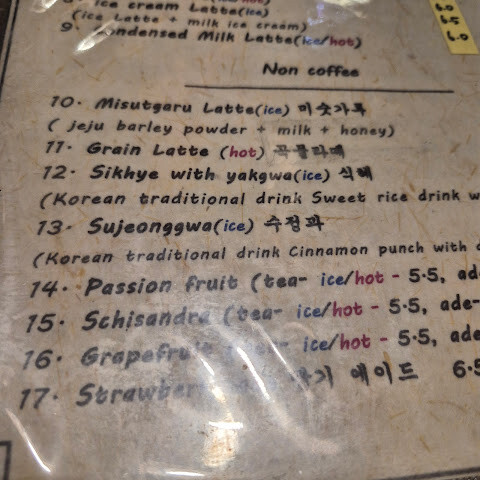 ice cream Latte(ice)
(ice Latte + milk ice cream) 6.5
9. Condensed Milk Latte(ice/hot) 6.0
Non coffee
10. Misutgaru Latte(ice) 미숫가루
( jeju barley powder + milk + honey)
11. Grain Latte (hot) 곡물라떼
12. Sikhye with yakgwa(ice) 식혜
(Korean traditional drink Sweet rice drink
13. Sujeonggwa(ice) 수정과
(Korean traditional drink Cinnamon punch with
14. Passion fruit (tea- ice/hot - 5.5, ade-
15. Schisandra (tea- ice/hot - 5.5, ade-
16. Grapefruit ice/hot - 5.5, ade
17. Strawberry 에이드 6.5